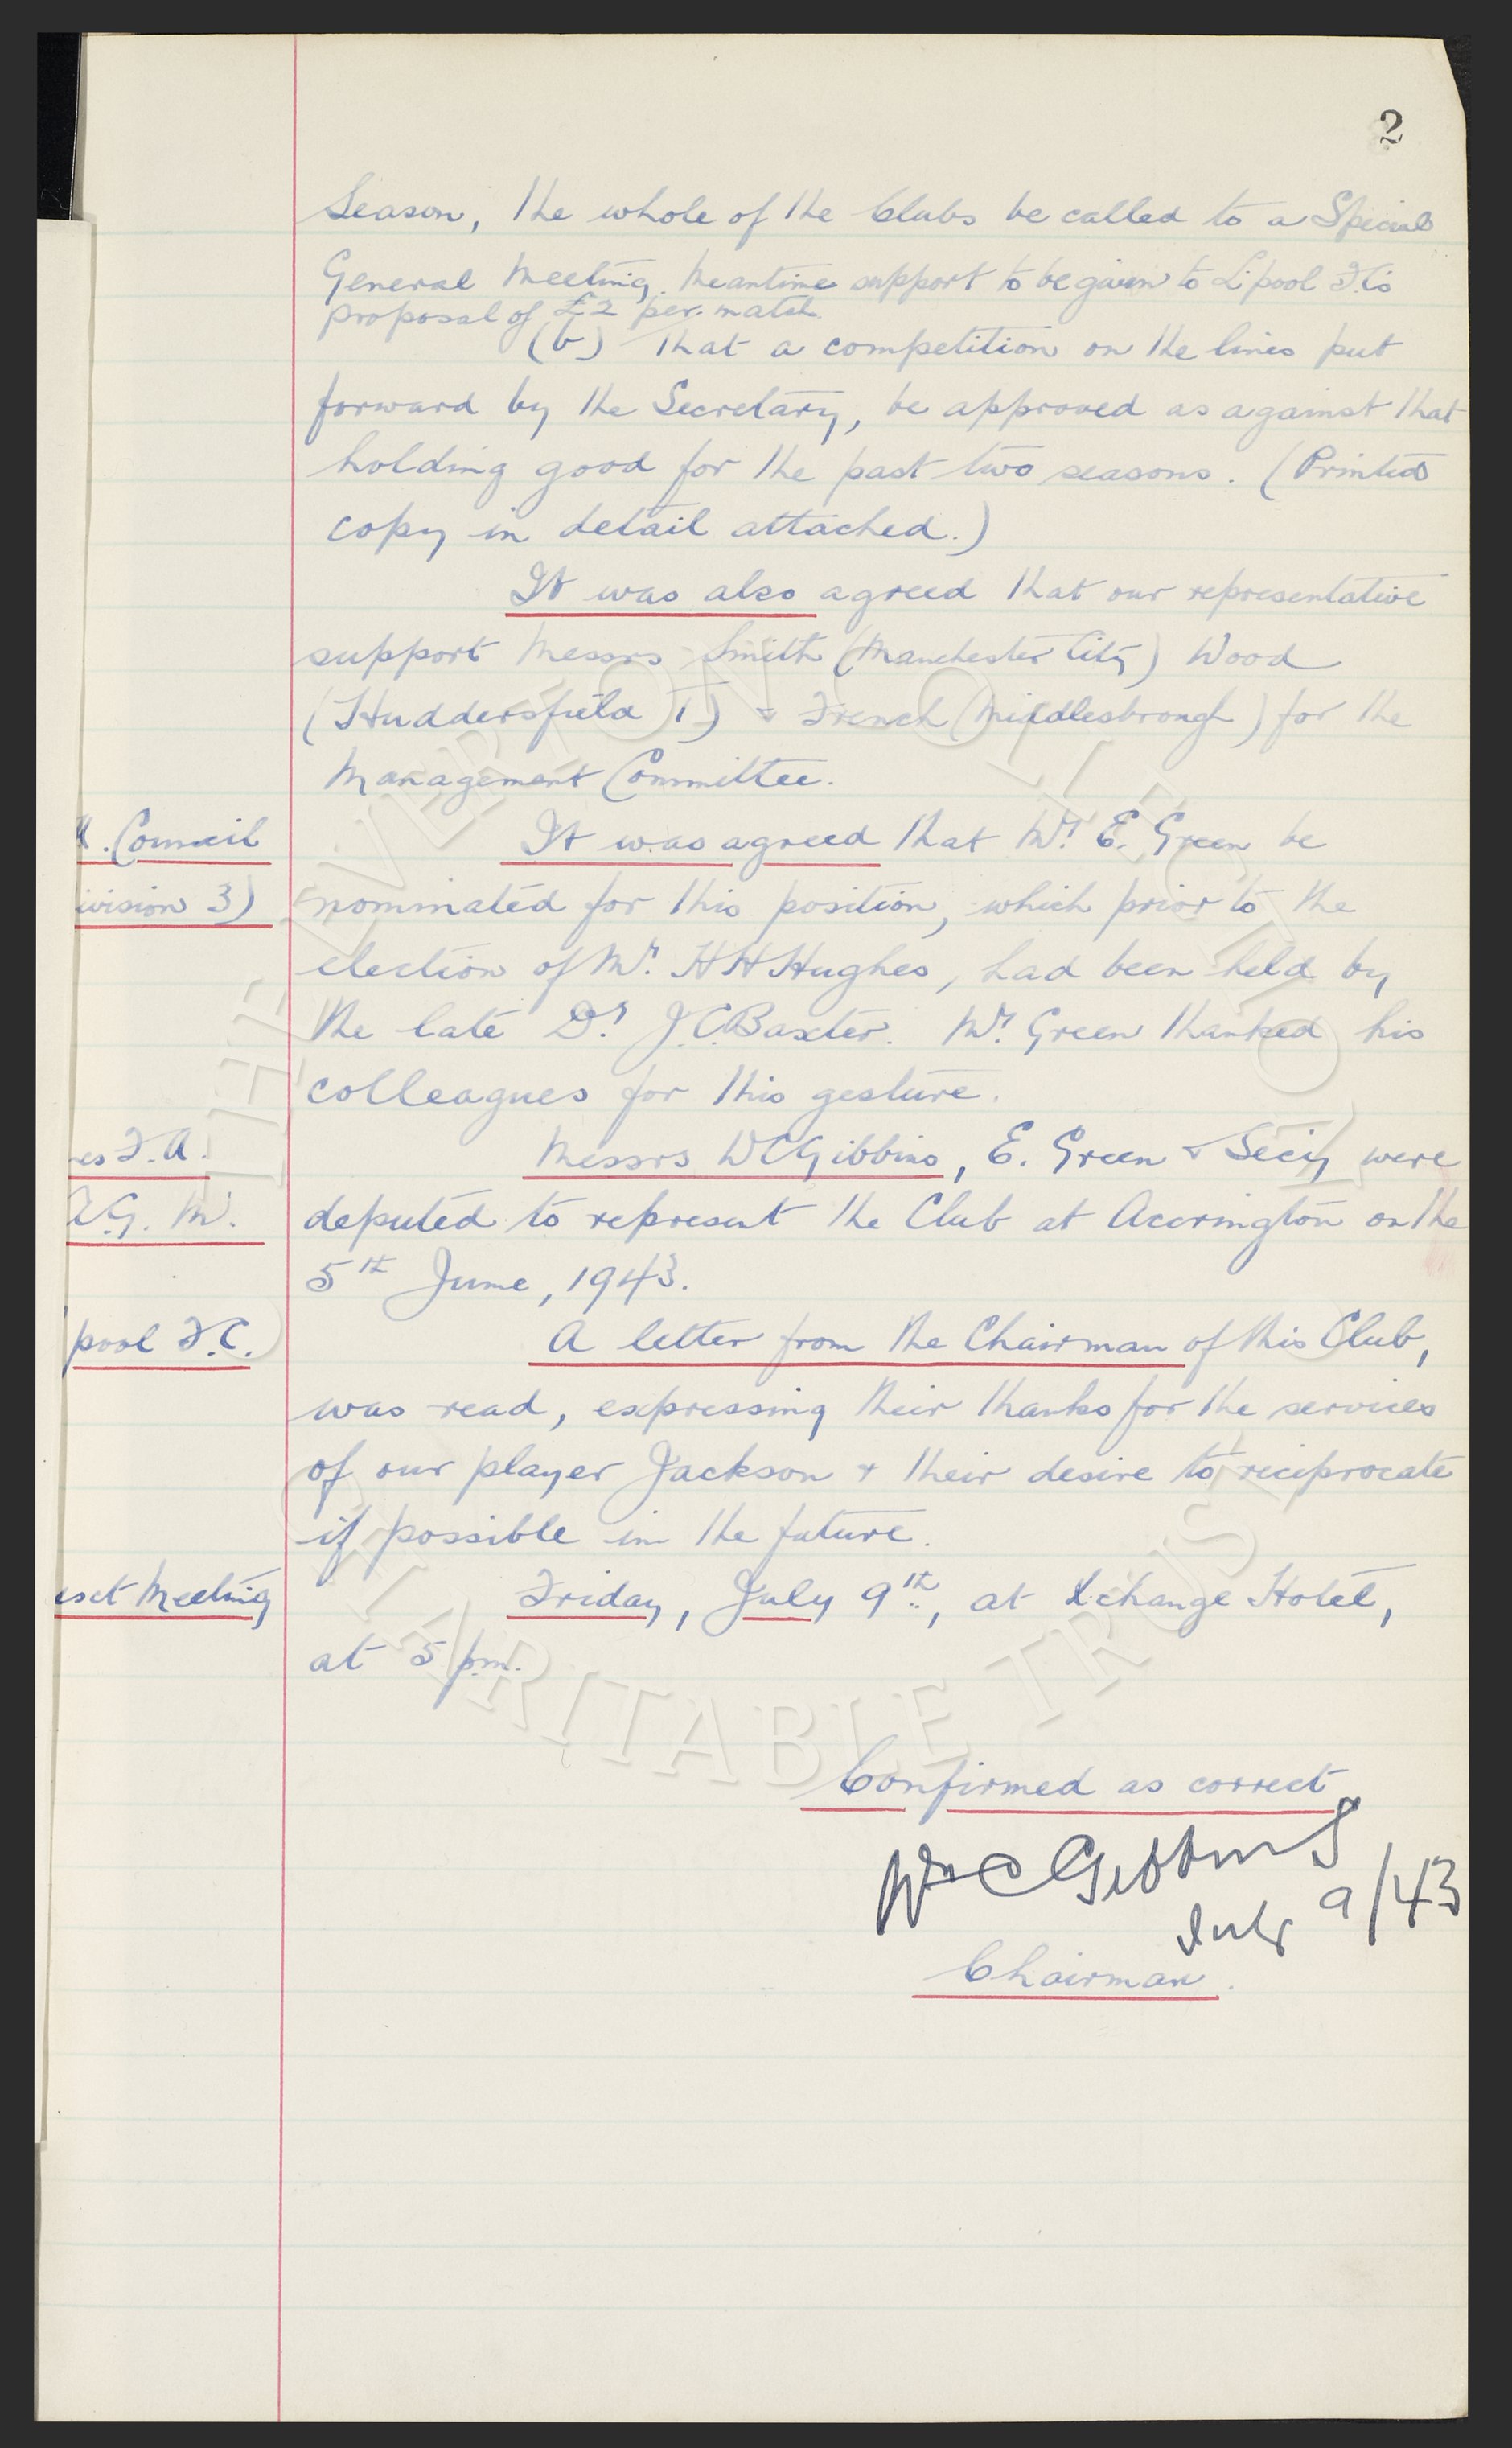 2
Season, the whole of the Clubs be called to a Special
General Meeting. Meantime support to be given to L'pool F.C's
proposal of £2 per match.
(b) That a competition on the lines put
forward by the Secretary, be approved as against that
holding good for the past two seasons. (Printed
copy in detail attached.)
It was also agreed that our representative
support Messrs Smith (Manchester City) Wood
(Huddersfield T) + French (Middlesbrough) for the
Management Committee.
. Council It was agreed that Mr. E. Green be
ivision 3) nominated for this position, which prior to the
election of Mr. H H Hughes, had been held by
the late Dr. J.C. Baxter. Mr. Green thanked his
colleagues for this gesture.
es F.A. Messrs W C Gibbins, E. Green + Sec'y were
A.G.M. deputed to represent the Club at Accrington on the
5th June, 1943.
pool F.C. A letter from the Chairman of this Club,
was read, expressing their thanks for the services
of our player Jackson + their desire to reciprocate
if possible in the future.
ext Meeting Friday, July 9th, at Xchange Hotel,
at 5 p.m.
Confirmed as correct
Wm C Gibbins
July 9/43
Chairman.
THE EVERTON COLLECTION
CHARITABLE TRUST